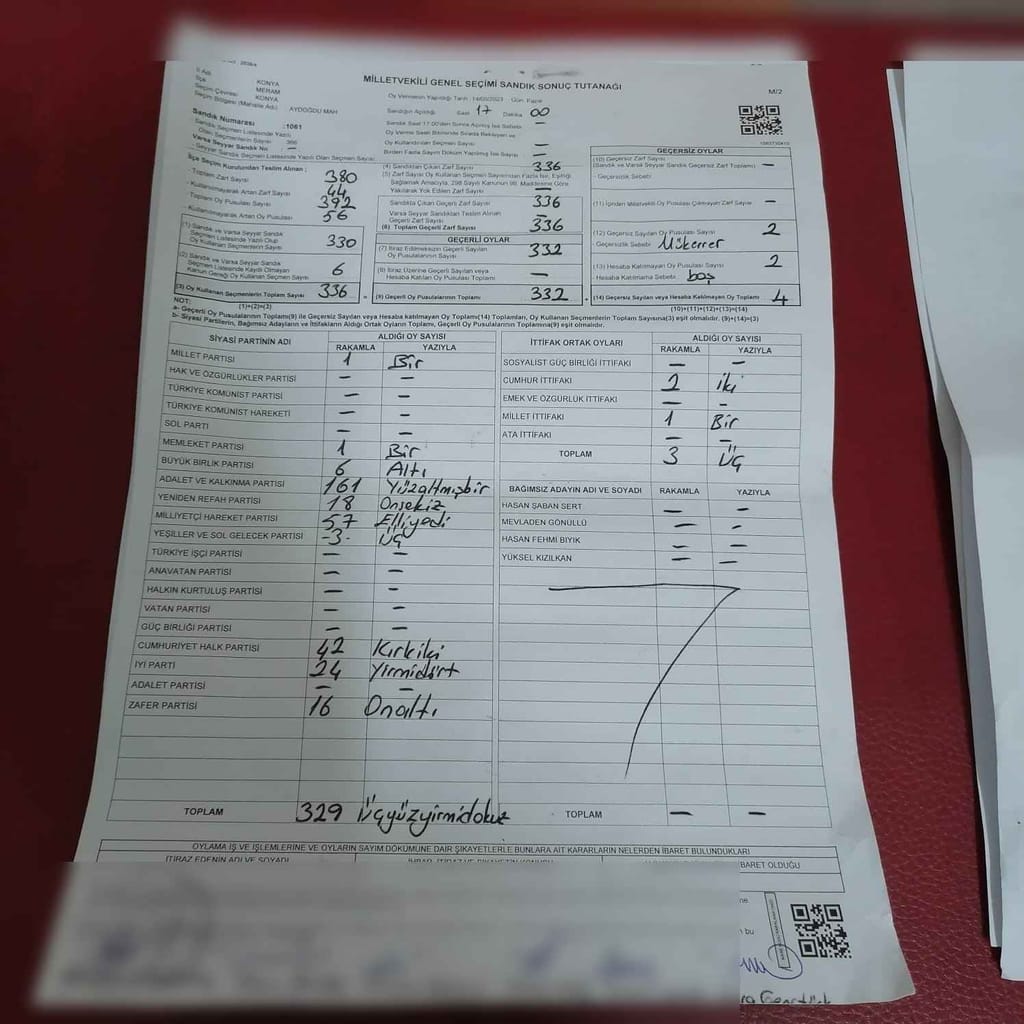 MİLLETVEKİLİ GENEL SEÇİMİ SANDIK SONUÇ TUTANAĞI
M/2
İl Adı KONYA
İlçe MERAM
Seçim Çevresi KONYA
Seçim Bölgesi (Mahalle Adı) AYDOĞDU MAH
Oy Vermenin Yapıldığı Tarih : 14/05/2023 Gün: Pazar
Sandığın Açıldığı Saat 17 Dakika 00
Sandık Numarası :1061
Sandık Seçmen Listesinde Yazılı
Olan Seçmenlerin Sayısı 366
Varsa Seyyar Sandık No —
- Seyyar Sandık Seçmen Listesinde Yazılı Olan Seçmen Sayısı
Sandık Saat 17:00'den Sonra Açılmış İse Sebebi —
Oy Verme Saati Bitiminde Sırada Bekleyen ve
Oy Kullandırılan Seçmen Sayısı —
Birden Fazla Sayım Döküm Yapılmış İse Sayısı —
İlçe Seçim Kurulundan Teslim Alınan ;
- Toplam Zarf Sayısı 380
- Kullanılmayarak Artan Zarf Sayısı 44
- Toplam Oy Pusulası Sayısı 392
- Kullanılmayarak Artan Oy Pusulası 56
(1) Sandık ve Varsa Seyyar Sandık
Seçmen Listesinde Yazılı Olup
Oy Kullanan Seçmenlerin Sayısı 330
(2) Sandık ve Varsa Seyyar Sandık
Seçmen Listesinde Kayıtlı Olmayan
Kanun Gereği Oy Kullanan Seçmen Sayısı 6
(3) Oy Kullanan Seçmenlerin Toplam Sayısı 336
(1)+(2)=(3)
(4) Sandıktan Çıkan Zarf Sayısı 336
(5) Zarf Sayısı Oy Kullanan Seçmen Sayısından Fazla İse, Eşitliği
Sağlamak Amacıyla, 298 Sayılı Kanunun 98. Maddesine Göre
Yakılarak Yok Edilen Zarf Sayısı —
Sandıkta Çıkan Geçerli Zarf Sayısı 336
Varsa Seyyar Sandıktan Teslim Alınan
Geçerli Zarf Sayısı —
(6) Toplam Geçerli Zarf Sayısı 336
GEÇERLİ OYLAR
(7) İtiraz Edilmeksizin Geçerli Sayılan
Oy Pusulalarının Sayısı 332
(8) İtiraz Üzerine Geçerli Sayılan veya
Hesaba Katılan Oy Pusulası Toplamı —
(9) Geçerli Oy Pusulalarının Toplamı 332
GEÇERSİZ OYLAR
(10) Geçersiz Zarf Sayısı
(Sandık ve Varsa Seyyar Sandık Geçersiz Zarf Toplamı) —
- Geçersizlik Sebebi
(11) İçinden Milletvekili Oy Pusulası Çıkmayan Zarf Sayısı —
(12) Geçersiz Sayılan Oy Pusulası Sayısı 2
- Geçersizlik Sebebi Mükerrer
(13) Hesaba Katılmayan Oy Pusulası Sayısı 2
- Hesaba Katılmama Sebebi boş
(14) Geçersiz Sayılan veya Hesaba Katılmayan Oy Toplamı 4
(10)+(11)+(12)+(13)=(14)
NOT:
a- Geçerli Oy Pusulalarının Toplamı(9) ile Geçersiz Sayılan veya Hesaba Katılmayan Oy Toplamı(14) Toplamları, Oy Kullanan Seçmenlerin Toplam Sayısına(3) eşit olmalıdır. (9)+(14)=(3)
b- Siyasi Partilerin, Bağımsız Adayların ve İttifakların Aldığı Ortak Oyların Toplamı, Geçerli Oy Pusulalarının Toplamına(9) eşit olmalıdır.
SİYASİ PARTİNİN ADI ALDIĞI OY SAYISI
RAKAMLA YAZIYLA
MİLLET PARTİSİ 1 Bir
HAK VE ÖZGÜRLÜKLER PARTİSİ — —
TÜRKİYE KOMÜNİST PARTİSİ — —
TÜRKİYE KOMÜNİST HAREKETİ — —
SOL PARTİ — —
MEMLEKET PARTİSİ 1 Bir
BÜYÜK BİRLİK PARTİSİ 6 Altı
ADALET VE KALKINMA PARTİSİ 161 Yüzaltmışbir
YENİDEN REFAH PARTİSİ 18 Onsekiz
MİLLİYETÇİ HAREKET PARTİSİ 57 Elliyedi
YEŞİLLER VE SOL GELECEK PARTİSİ -3- Üç
TÜRKİYE İŞÇİ PARTİSİ — —
ANAVATAN PARTİSİ — —
HALKIN KURTULUŞ PARTİSİ — —
VATAN PARTİSİ — —
GÜÇ BİRLİĞİ PARTİSİ — —
CUMHURİYET HALK PARTİSİ 42 Kırkiki
İYİ PARTİ 24 Yirmidört
ADALET PARTİSİ — —
ZAFER PARTİSİ 16 Onaltı
TOPLAM 329 Üçyüzyirmidokuz
İTTİFAK ORTAK OYLARI ALDIĞI OY SAYISI
RAKAMLA YAZIYLA
SOSYALİST GÜÇ BİRLİĞİ İTTİFAKI — —
CUMHUR İTTİFAKI 2 iki
EMEK VE ÖZGÜRLÜK İTTİFAKI — —
MİLLET İTTİFAKI 1 Bir
ATA İTTİFAKI — —
TOPLAM 3 Üç
BAĞIMSIZ ADAYIN ADI VE SOYADI RAKAMLA YAZIYLA
HASAN ŞABAN SERT — —
MEVLADEN GÖNÜLLÜ — —
HASAN FEHMİ BIYIK — —
YÜKSEL KIZILKAN — —
TOPLAM — —
OYLAMA İŞ VE İŞLEMLERİNE VE OYLARIN SAYIM DÖKÜMÜNE DAİR ŞİKAYETLERLE BUNLARA AİT KARARLARIN NELERDEN İBARET BULUNDUKLARI
İTİRAZ EDENİN ADI VE SOYADI
BARET OLDUĞU